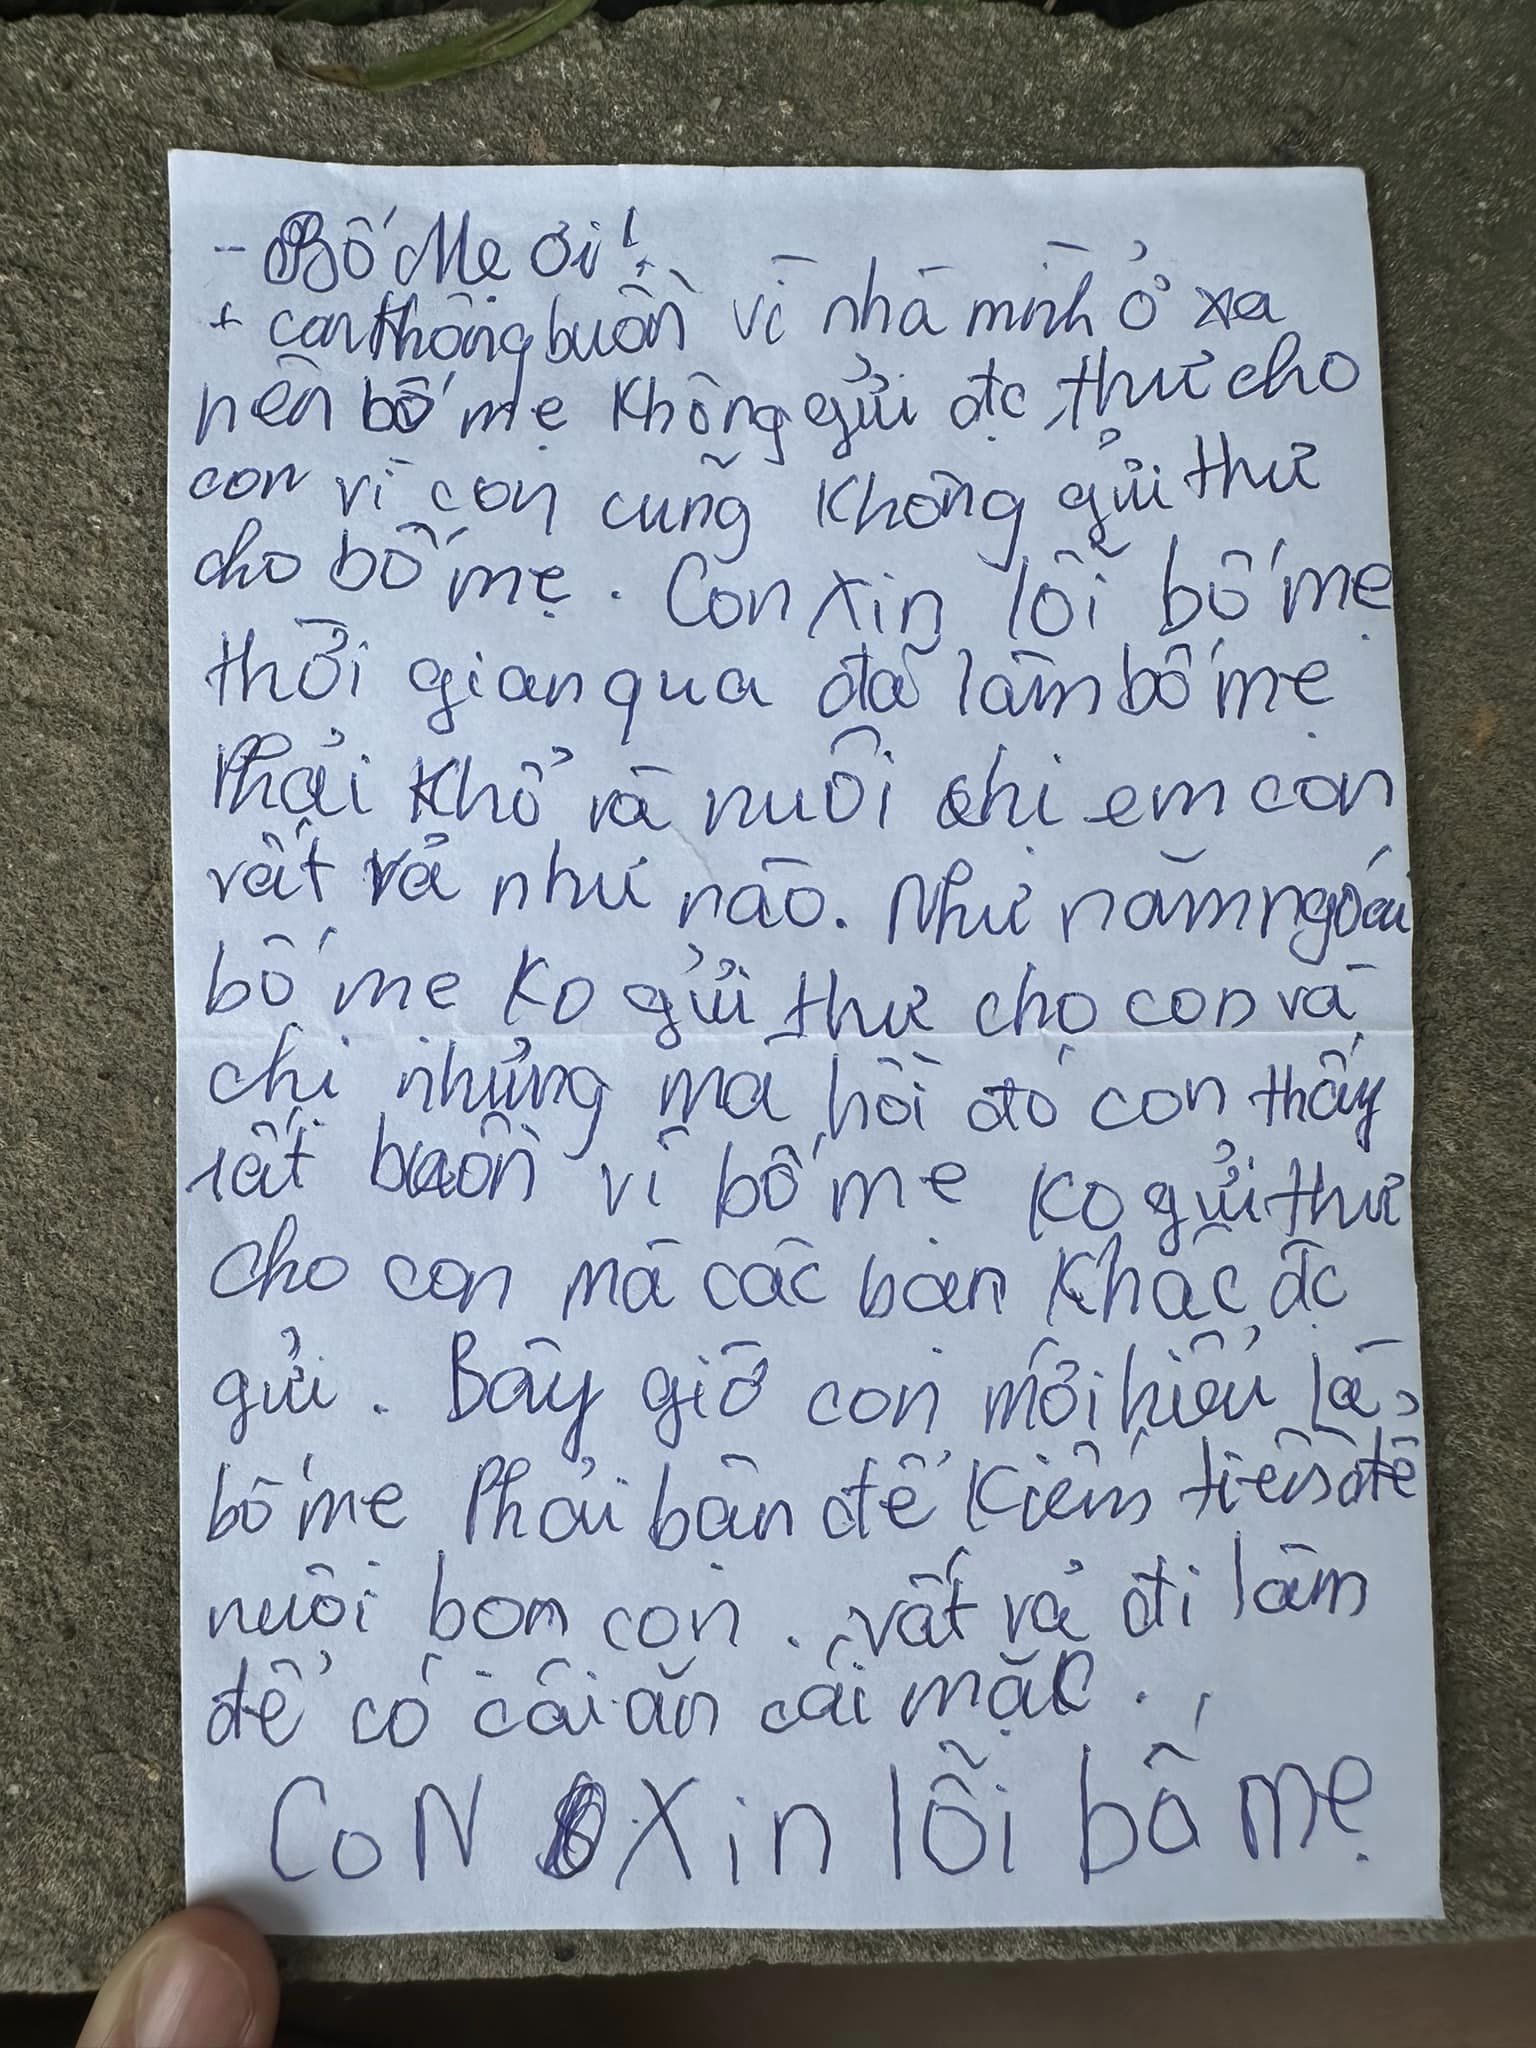 - Bố Mẹ ơi!
+ con không buồn vì nhà mình ở xa
nên bố mẹ không gửi đc thư cho
con vì con cũng không gửi thư
cho bố mẹ. Con xin lỗi bố mẹ
thời gian qua đã làm bố mẹ
phải khổ và nuôi chị em con
vất vả như nào. Như năm ngoái
bố mẹ ko gửi thư cho con và
chị nhưng mà hồi đó con thấy
rất buồn vì bố mẹ ko gửi thư
cho con mà các bạn khác đc
gửi. Bây giờ con mới hiểu là
bố mẹ phải bận để kiếm tiền để
nuôi bọn con. vất vả đi làm
để có cái ăn cái mặc.
CON Xin lỗi bố mẹ